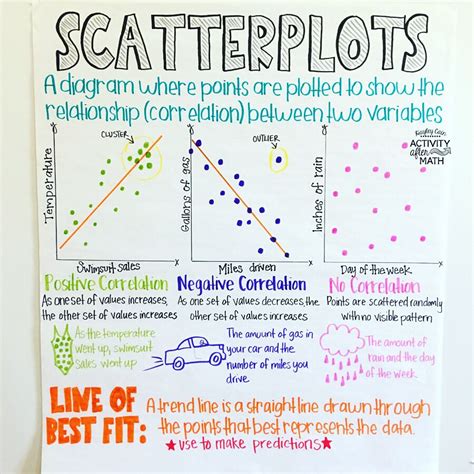 SCATTERPLOTS
A diagram where points are plotted to show the
relationship (correlation) between two variables
Kayley Cain
ACTIVITY
after
MATH
CLUSTER
Temperature
Swimsuit sales
OUTLIER
Gallons of gas
Miles driven
Inches of rain
Day of the week
Positive Correlation
As one set of values increases,
the other set of values increases
Negative Correlation
As one set of values decreases, the
other set of values increases
No Correlation
Points are scattered randomly
with no visible pattern
As the temperature
went up, swimsuit
sales went up
The amount of gas in
your car and the
number of miles you
drive.
The amount of
rain and the day
of the week
LINE OF
BEST FIT:
A trend line is a straight line drawn through
the points that best represents the data.
★use to make predictions★